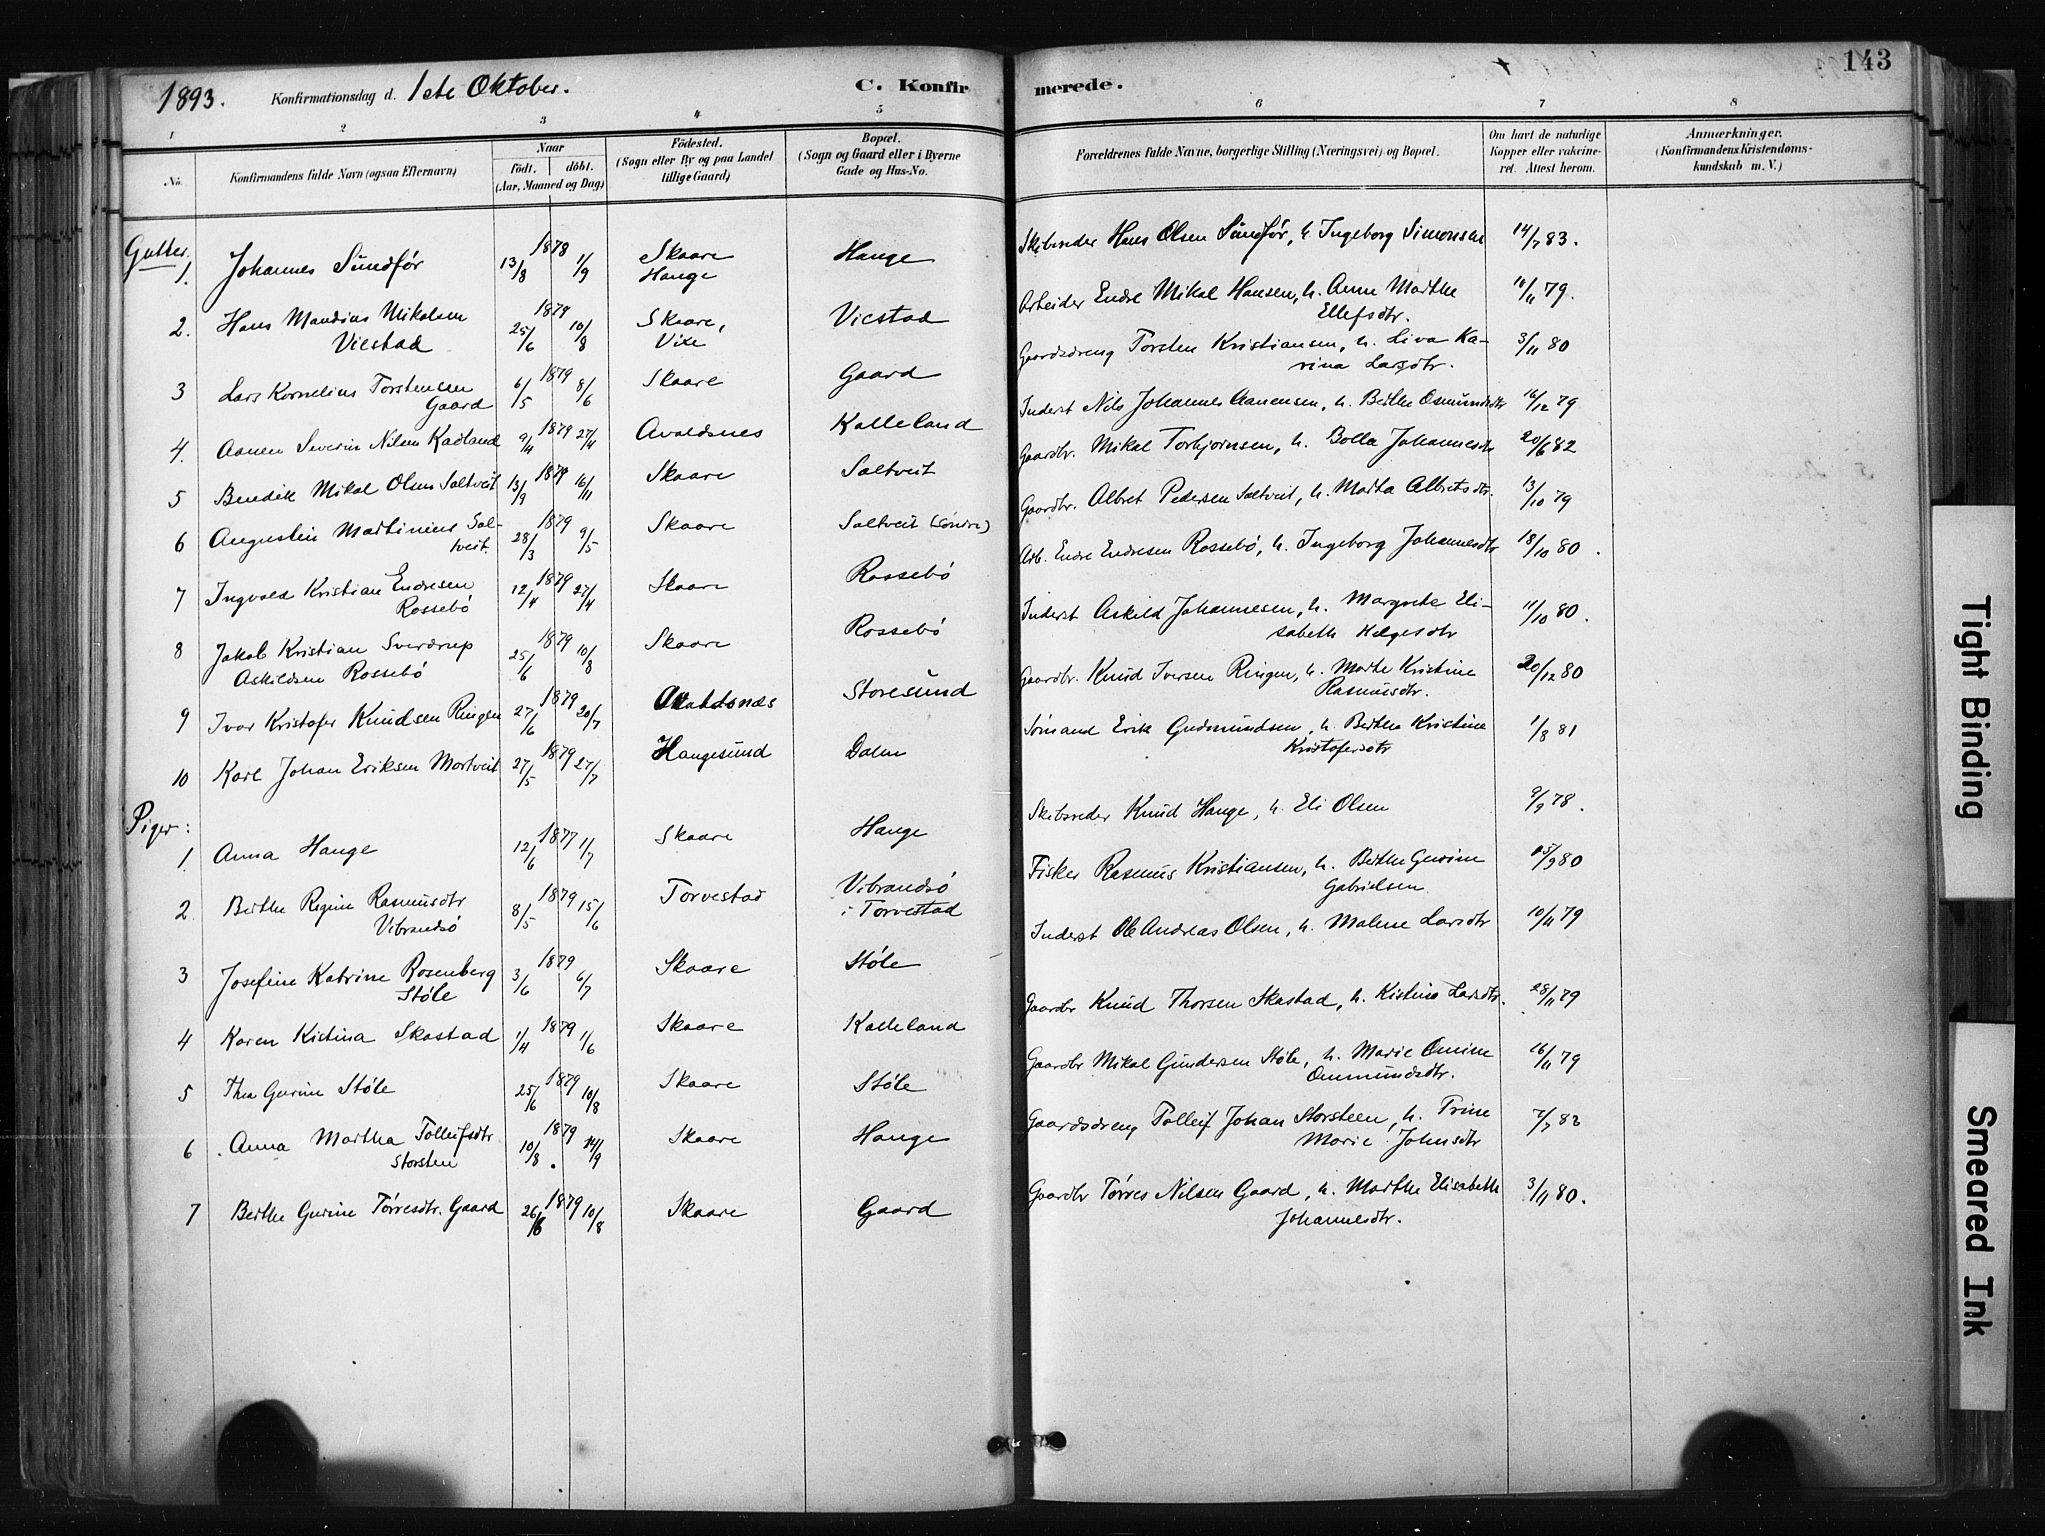 1893. Konfirmationsdag d. 1ste Oktober. C. Konfirmerede. 143
1 2 3 4 5 6 7 8
No. Konfirmandens fulde Navn (ogsaa Efternavn) Naar födt. döbt. (Aar, Maaned og Dag) Födested. (Sogn eller By og paa Landet tillige Gaard) Bopæl. (Sogn og Gaard eller i Byerne Gade og Hus-No. Forældrenes fulde Navne, borgerlige Stilling (Næringsvei) og Bopæl. Om havt de naturlige Kopper eller vakcineret. Attest herom. Anmærkninger. (Konfirmandens Kristendomskundskab m. V.)
Gutter.
1. Johannes Sundför 1878 13/8 1/9 Skaare Hauge Hauge Skibsreder Hans Olsen Sundför, h. Ingeborg Simonsen 14/7 83.
2. Hans Maudius Mikalsen Viestad 1879 25/6 10/8 Skaare, Vixe Viestad Arbeider Endre Mikal Hansen, h. Anne Marthe Ellefsdtr. 11/11 79.
3 Lars Kornelius Torstensen Gaard 6/5 1879 8/6 Skaare Gaard Gaardsdreng Torsten Kristiansen, h. Liva Karina Larsdtr. 3/11 80
4. Aanen Severin Nilsen Kadland 9/4 1879 27/4 Avaldsnes Kalleland Inderst Nils Johannes Aanensen, h. Berthe Osmundsdtr 16/12 79
5 Bendik Mikal Olsen Saltveit 13/9 1879 16/11 Skaare Saltveit Gaardbr. Mikal Torbjørnsen, h. Bolla Johannesdtr 20/6 82
6 Augustin Martinius Saltveit. 28/3 1879 9/5 Skaare Saltveit (Søndre) Gaardbr. Albret Pedersen Saltveit, h. Marta Albretsdtr. 13/10 79
7 Ingvald Kristian Endresen Rossebö 12/4 1879 27/4 Skaare Rossebö Arb. Endre Endresen Rossebö, h. Ingeborg Johannesdtr 18/10 80.
8 Jakob Kristian Sverdrup Askildsen Rossebö 25/6 1879 10/8 Skaare Rossebö Inderst Askild Johannesen, h. Margrete Elisabeth Helgesdtr 11/10 80.
9 Ivar Kristofer Knudsen Ringen 27/6 1879 20/7 Avaldsnæs Storesund Gaardbr. Knud Iversen Ringen, h. Marte Kristine Rasmusdtr. 20/12 80
10 Karl Johan Eriksen Mortveit 27/5 1879 27/7 Haugesund Dalen Sömand Erik Gudmundsen, h. Berthe Kristine Kristofersdtr 1/8 81
Piger:
1. Anna Hauge 12/6 1877 1/7 Skaare Hauge Skibsreder Knud Hauge, h. Eli Olsen 9/9 78.
2. Berthe Regine Rasmusdtr Vibrandsö 8/5 1879 15/6 Torvestad Vibrandsö i Torvestad Fisker Rasmus Kristiansen, h. Berthe Gurine Gabrielsen 15/9 80
3 Josefine Katrine Rosenberg Støle 3/6 1879 6/7 Skaare Støle Inderst Ole Andreas Olsen, h. Malene Larsdtr 10/11 79
4 Karen Kistina Skastad 1/4 1879 1/6 Skaare Kalleland Gaardbr Knud Thorsen Skastad, h. Kistina Larsdtr. 28/11 79
5 Thea Gurine Støle 25/6 1879 10/8 Skaare Støle Gaardbr Mikal Gundersen Støle, h. Marie Omine Ommundsdtr. 16/11 79
6 Anna Martha Tolleifsdtr Storsten 10/8 1879 14/9 Skaare Hauge Gaardsdreng Tolleif Johan Storsteen, h. Trine Marie Johnsdtr 7/7 83
7 Berthe Gurine Tørresdtr. Gaard 26/6 1879 10/8 Skaare Gaard Gaardbr Tørres Nilsen Gaard, h. Marthe Elisabeth Johannesdtr. 3/11 80.
Tight Binding
Smeared Ink